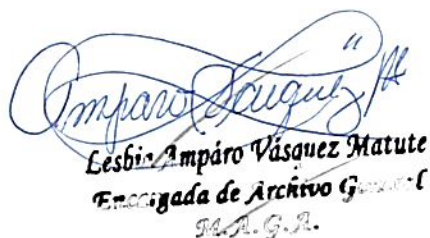 Amparo Vásquez M
Lesbia Ampáro Vásquez Matute
Encargada de Archivo General
M.A.G.A.